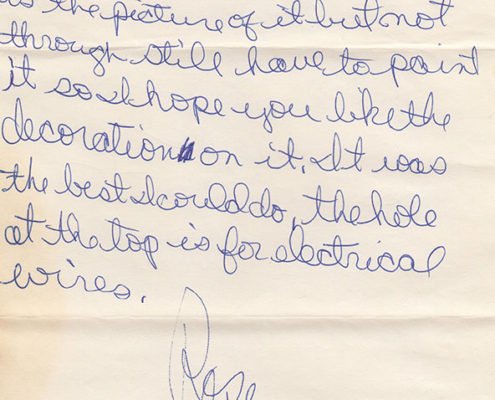 as the picture of it but not
through still have to paint
it so I hope you like the
decoration on it. It was
the best I could do, the hole
at the top is for electrical
wires.
Rose